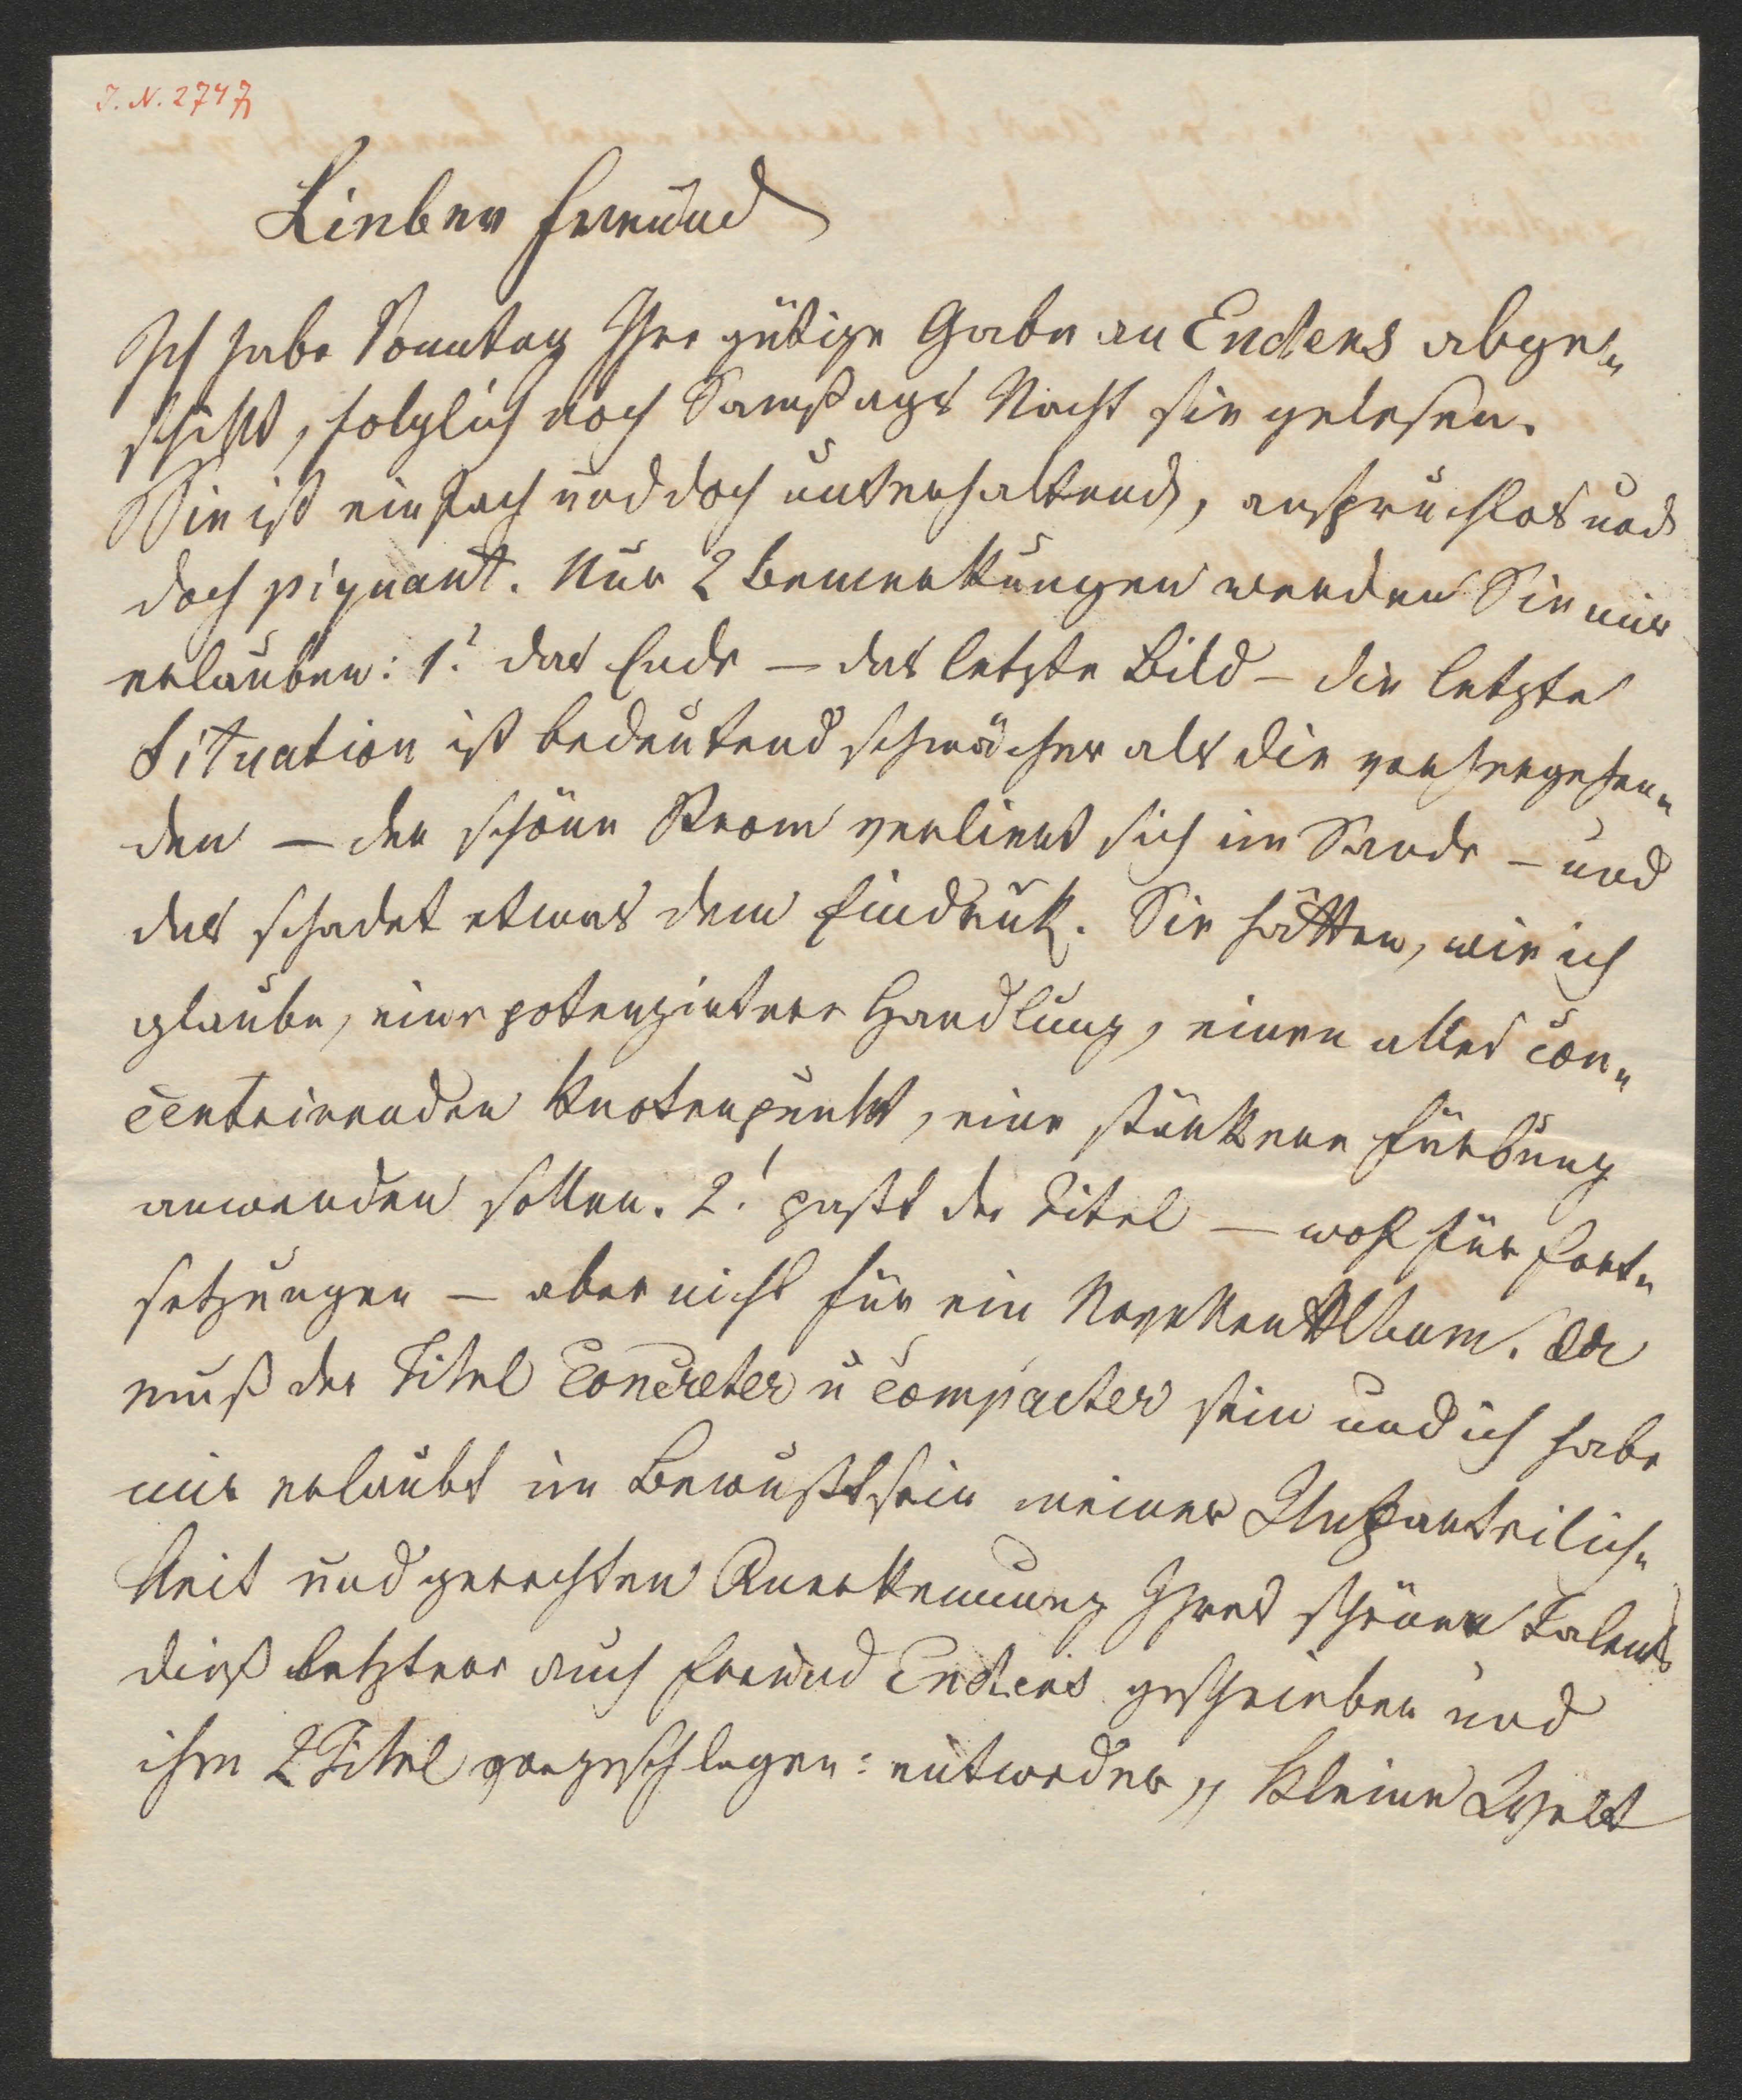 J. N. 2747
Lieber Freund
Ich habe Sonntag Ihre gütige Gabe an Enders abge-
schikt, folglich noch Samstags Nacht sie gelesen.
Sie ist einfach und doch unterhaltend, anspruchslos und
doch piquant. Nur 2 Bemerkungen werden Sie mir
erlauben: 1. das Ende – das letzte Bild – die letzte
Situation ist bedeutend schwächer als die vorhergehen-
den – der schöne Strom verliert sich im Sande – und
das schadet etwas dem Eindruk. Sie hätten, wie ich
glaube, eine potenzirtere Handlung, einen alles con-
centrirenden Knotenpunkt, eine stärkere Färbung
anwenden sollen. 2. paßt der Titel – wohl für Fort-
setzungen – aber nicht für ein Novellen Album. Da
muß der Titel concreter u compacter sein und ich habe
mir erlaubt im Bewußtsein meiner Unparteilich-
keit und gerechten Anerkennung Ihres schönen Talents
dieß letztere auch Freund Enders geschrieben und
ihm 2 Titel vorgeschlagen: entweder „Kleine Welt